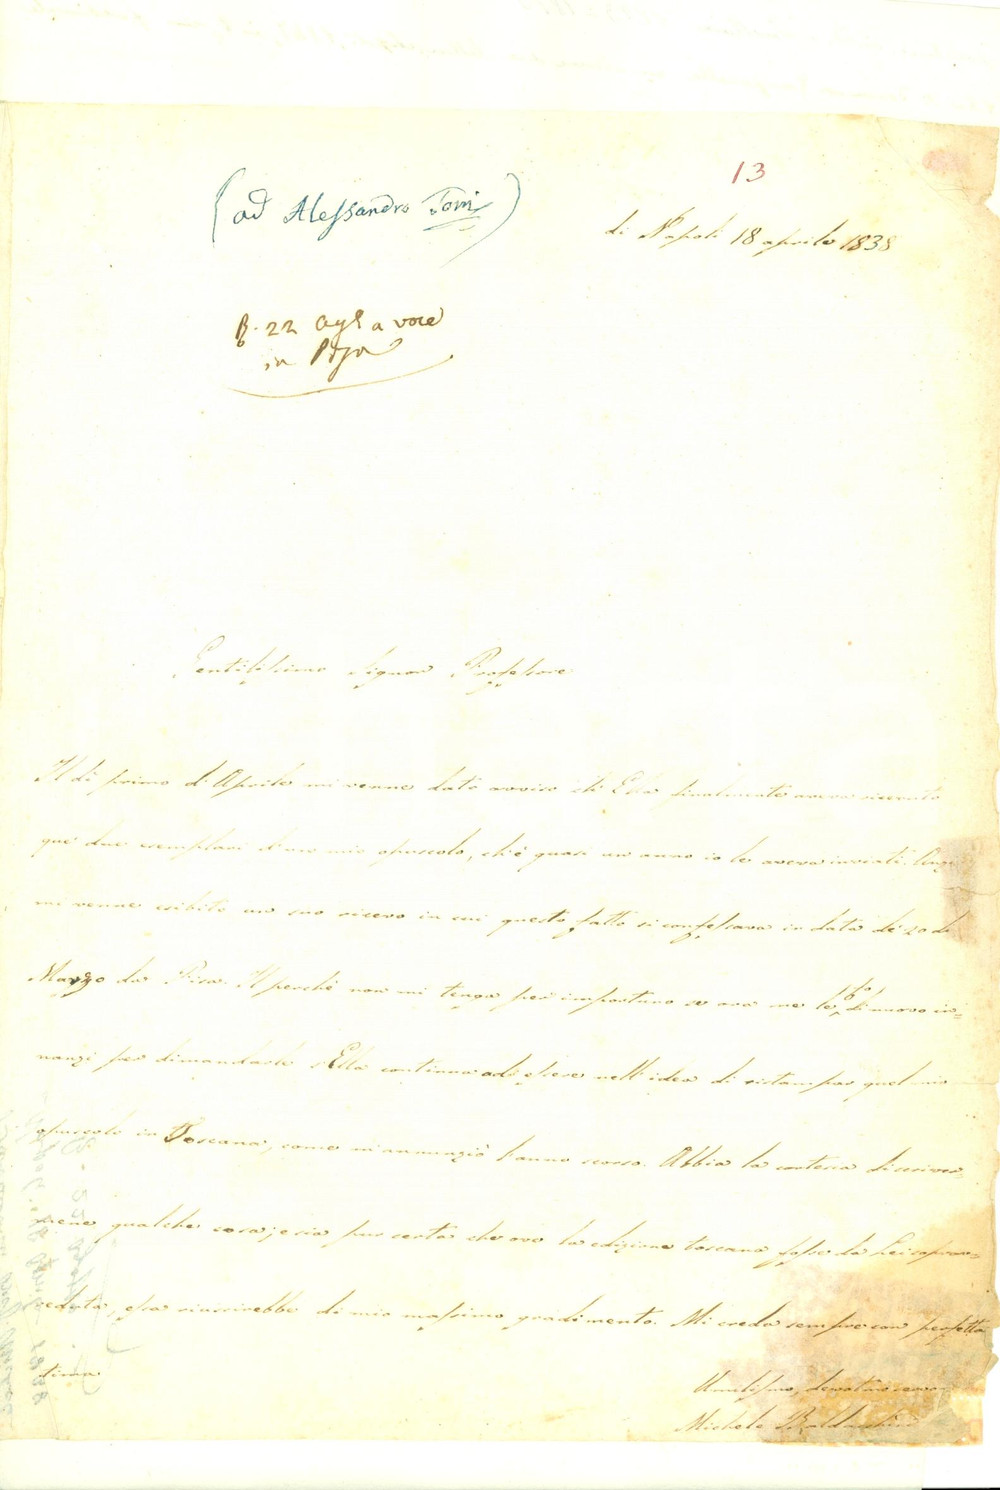 13
(ad Alessandro Torri)
di Napoli 18 aprile 1838
R. 22 Ag. a voce
in Pisa
Gentilissimo Signor Professore
Il dì primo di Aprile mi venne dato avviso ch'Ella finalmente aveva ricevuto
que' due esemplari d'uno mio opuscolo, ch'è quasi un anno io le aveva inviati. Anzi
mi venne esibito un suo ricevo in cui questo fatto si confessava in data de' 20 di
Marzo da Pisa. Il perchè non mi tenga per importuno se ora me le fo di nuovo in=
nanzi per dimandarle s'Ella continua ad essere nell'idea di ristampar quel mio
opuscolo in Toscana, come m'annunziò l'anno scorso. Abbia la cortesia di scriver=
mene qualche cosa, e sia pur certa che ove la edizione toscana fosse da Lei soprav=
veduta, essa riuscirebbe di mio massimo gradimento. Mi creda sempre con perfetta
stima
Umilissimo, devotmo servo
Michele Baldacchini